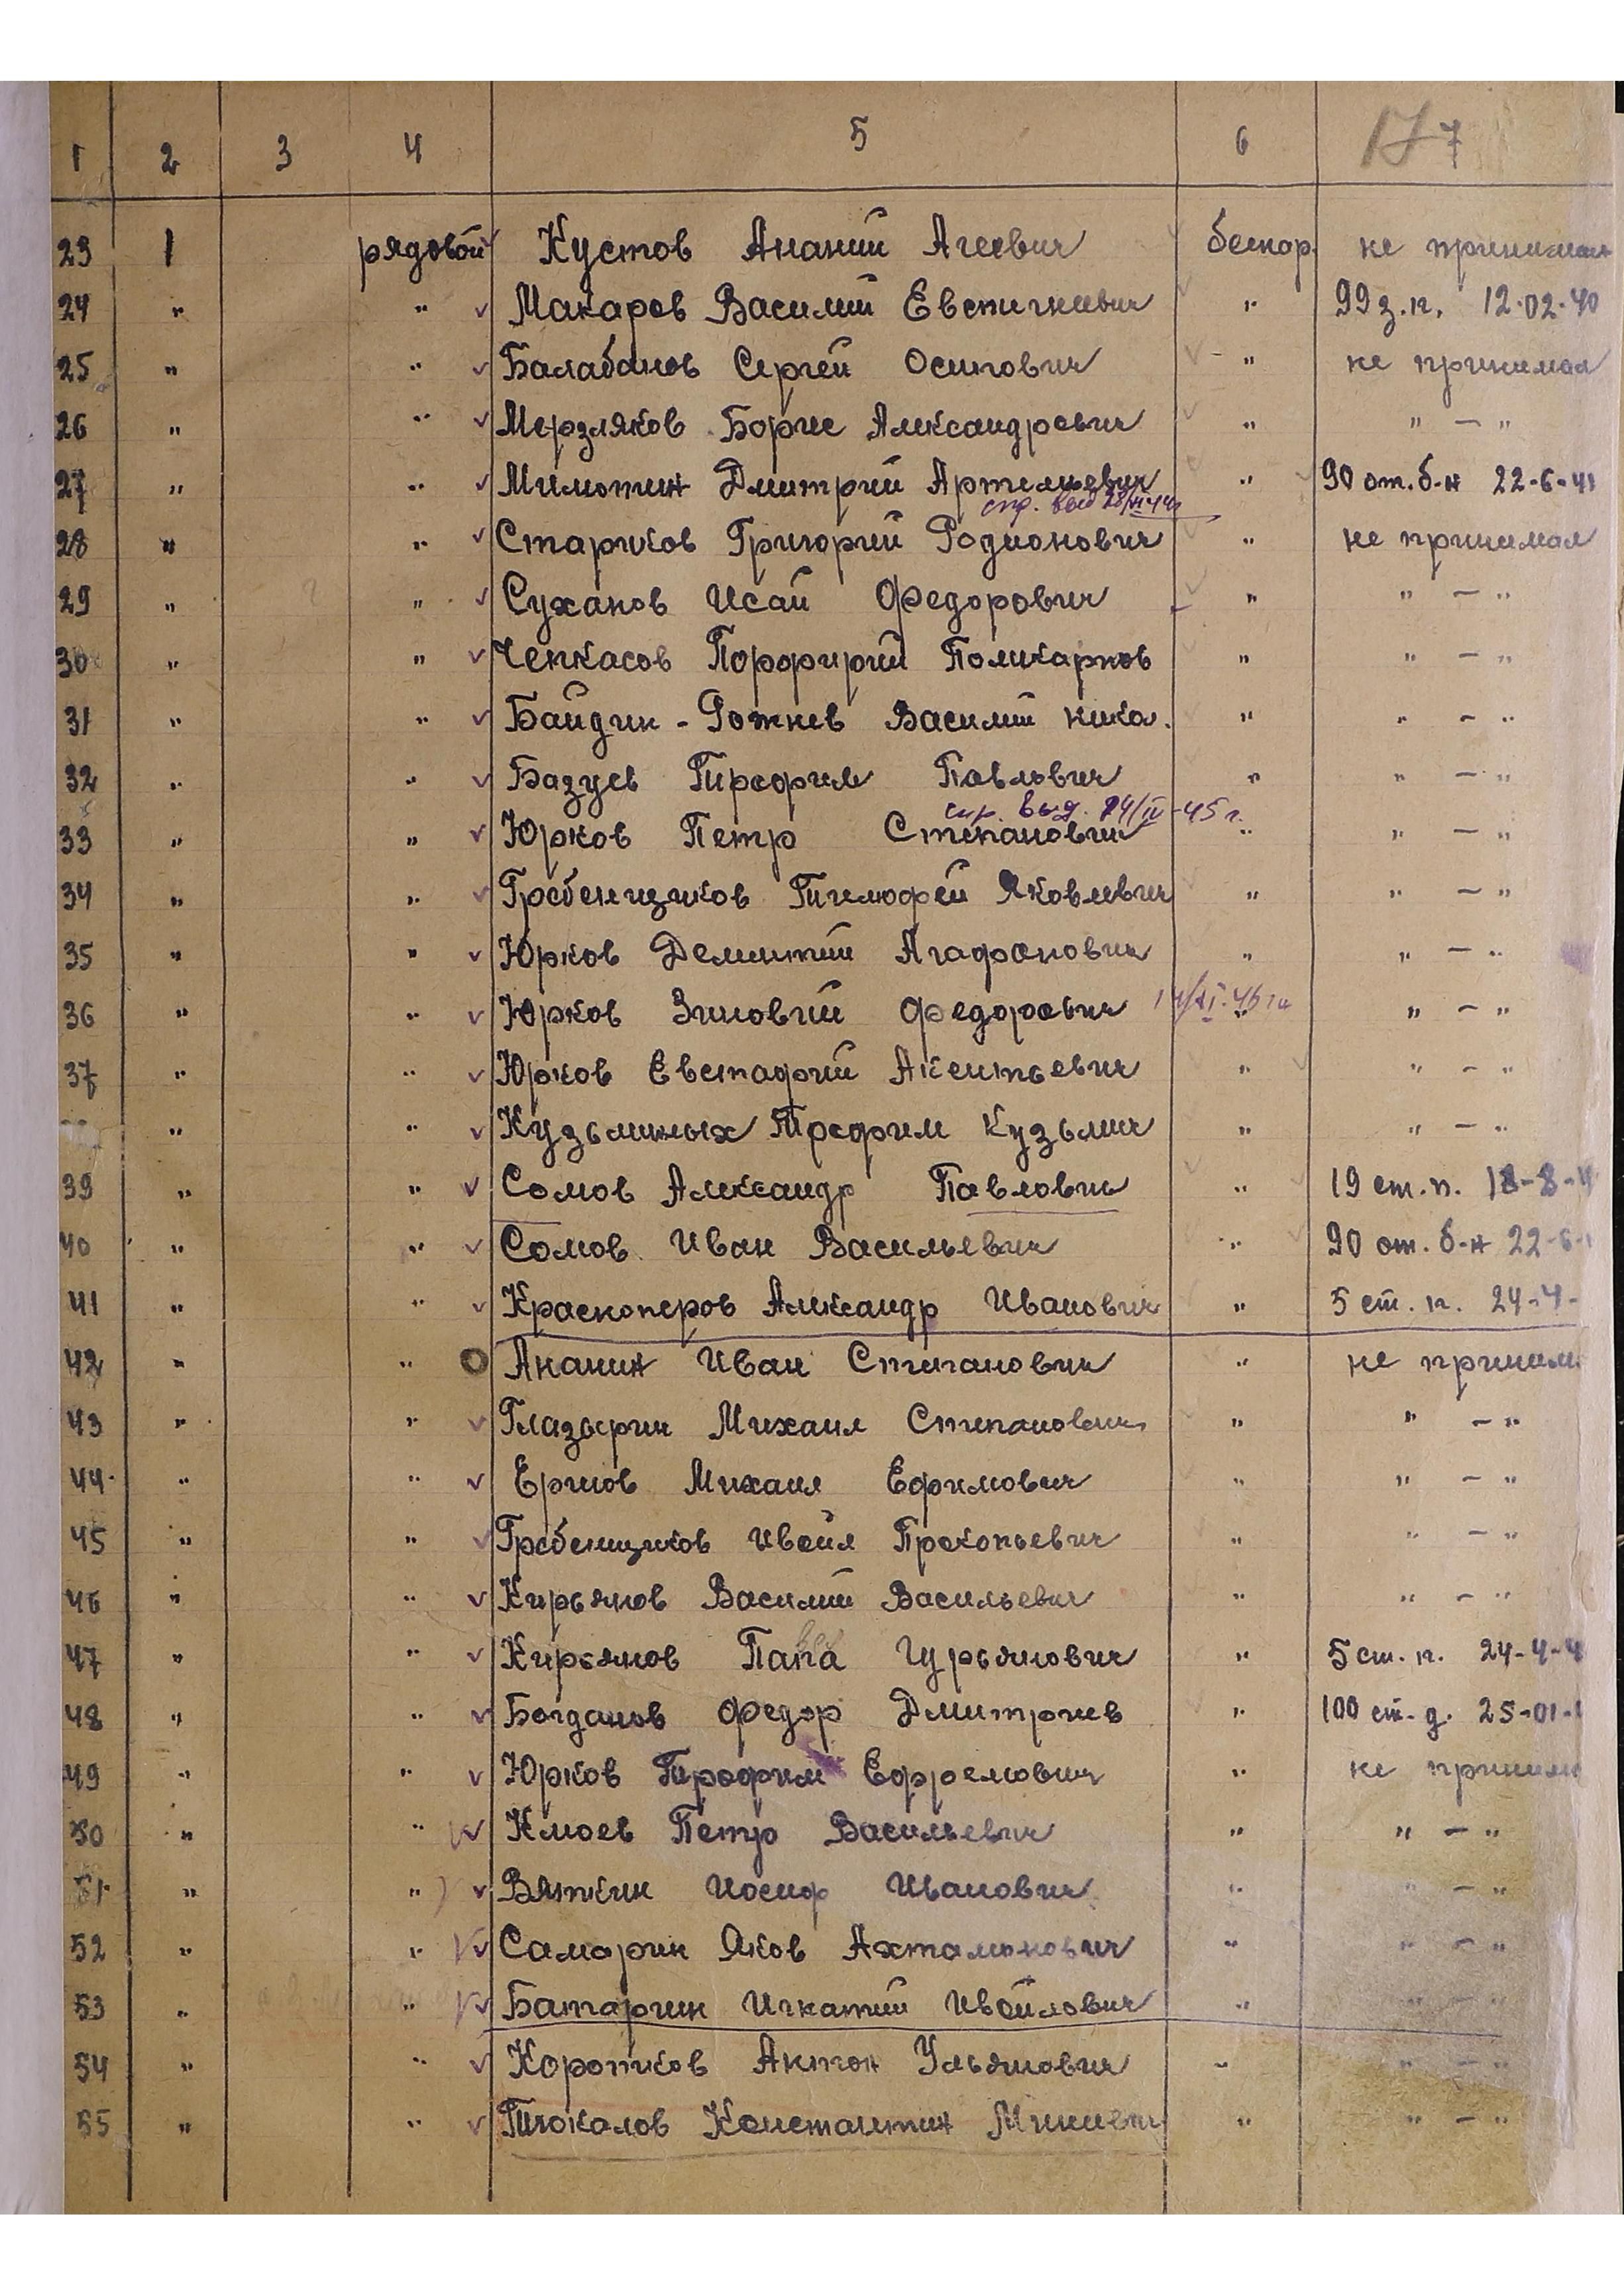 1 2 3 4 5 6 177
23 1 рядовой Кустов Ананий Агеевич беспар. не принимал
24 " " Макаров Василий Евстигнеевич " 99 з.п. 12-02-40
25 " " Балабанов Сергей Осипович " не принимал
26 " " Мерзляков Борис Александрович " " — "
27 " " Милютин Дмитрий Артемьевич " 90 от. б-н 22-6-41
28 " " Стариков Григорий Родионович " не принимал
29 " " Суханов Исай Федорович " " — "
30 " " Ченкасов Порфирий Поликарпов " " — "
31 " " Байдин - Рожнев Василий Никол. " " — "
32 " " Базуев Трофим Павлович " " — "
спр. выд. 24/IV-45 г.
33 " " Юрков Петр Степанович " " — "
34 " " Гребенщиков Тимофей Яковлевич " " — "
35 " " Юрков Дементий Агафонович " " — "
36 " " Юрков Зиновий Федорович " " — "
37 " " Юрков Евстафий Акентьевич " " — "
" " Кузьминых Трофим Кузьмич " " — "
39 " " Сомов Александр Павлович " 19 ст. п. 18-8-4
40 " " Сомов Иван Васильевич " 90 от. б-н 22-6-
41 " " Краскоперов Александр Иванович " 5 ст. п. 24-4-
42 " " Ананин Иван Степанович " не приним
43 " " Глазырин Михаил Степанович " " — "
44 " " Ершов Михаил Ефимович " " — "
45 " " Гребенщиков Ивойл Прокопьевич " " — "
46 " " Кирьянов Василий Васильевич " " — "
47 " " Кирьянов Папа Гурьянович " 5 ст. п. 24-4-4
48 " " Богданов Федор Дмитриев " 100 ст. д. 25-01-
49 " " Юрков Трофим Ефремович " не приним
50 " " Клюев Петр Васильевич " " — "
51 " " Вяткин Иосиф Иванович " " — "
52 " " Самарин Яков Ахтамонович " " — "
53 " " Батарин Игнатий Ивойлович " " — "
54 " " Коротков Антон Ульянович " " — "
55 " " Тюкалов Константин " " — "